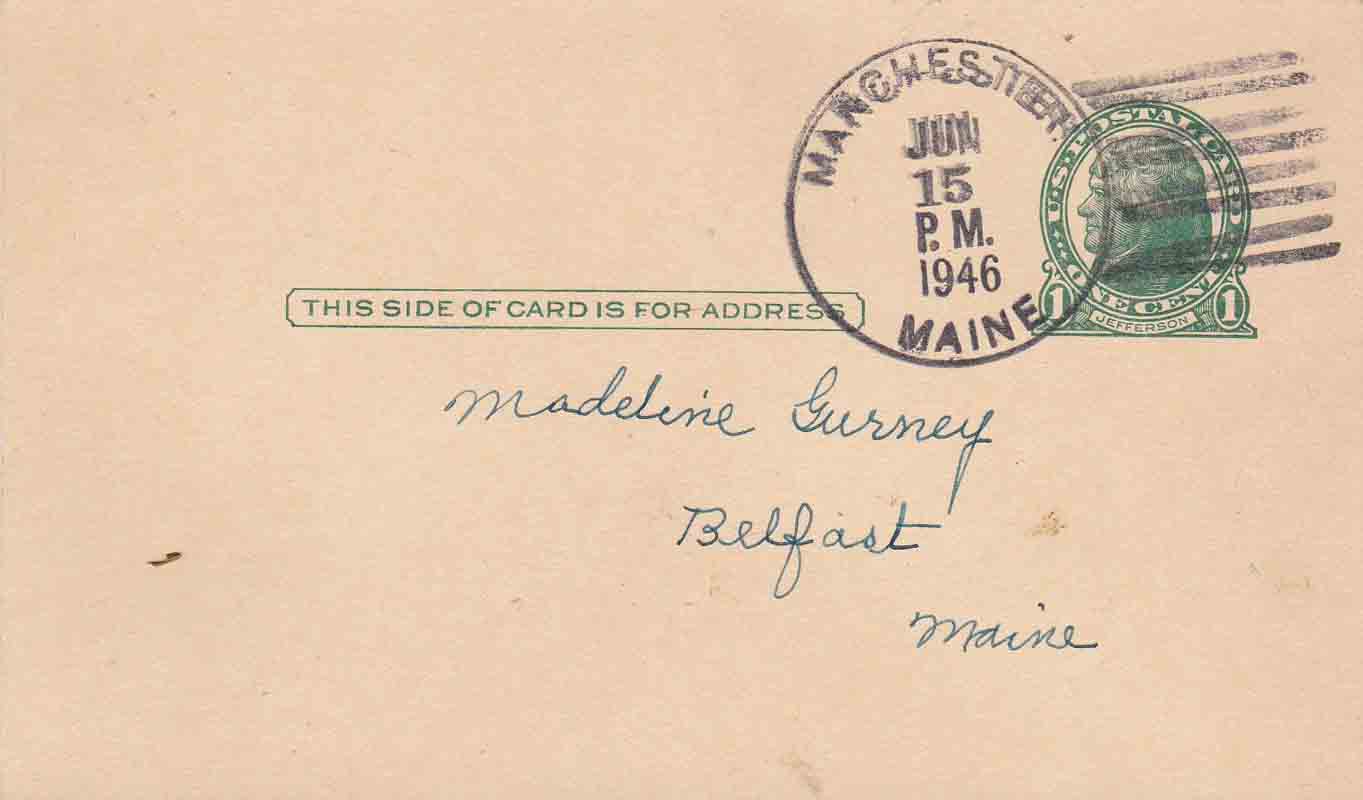 MANCHESTER
JUN
15
P. M.
1946
MAINE
U.S. POSTAL CARD
ONE CENT
1 JEFFERSON 1
THIS SIDE OF CARD IS FOR ADDRESS
Madeline Gurney
Belfast
Maine